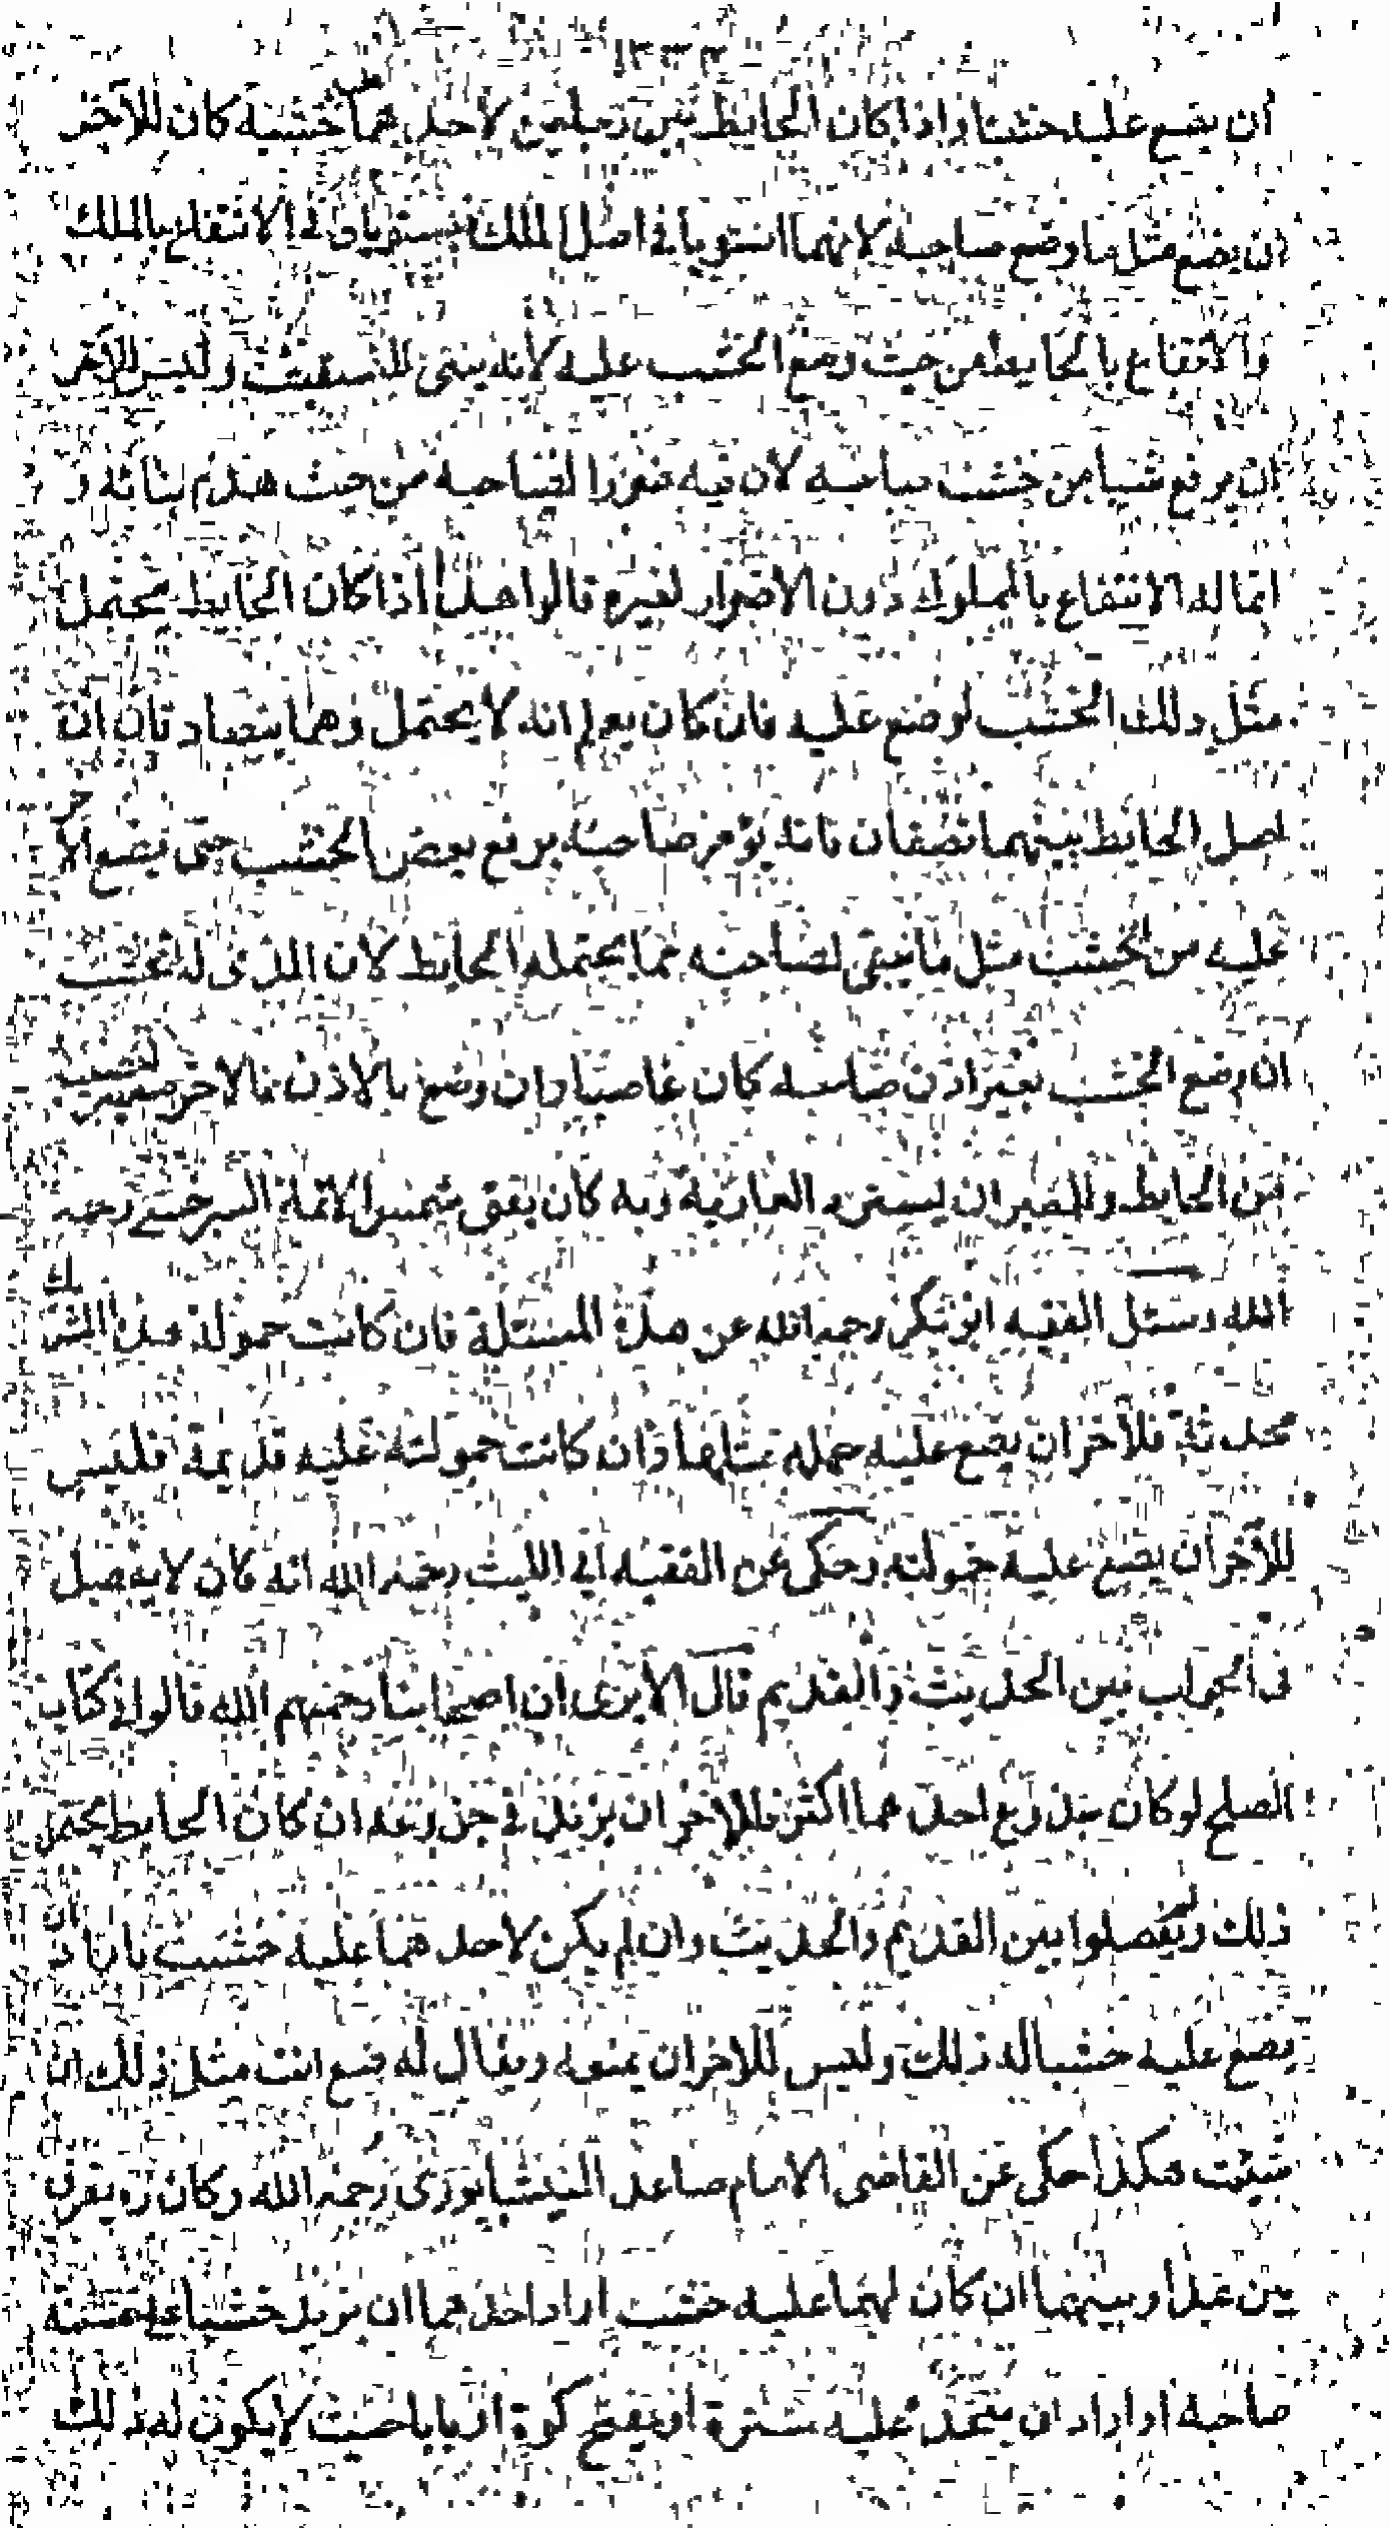 أن يضع عليه خشبا واذا كان الحايط بين رجلين لاحدهما خشبة كان للآخر
ان يضع مثل ما وضع صاحبه لانهما استويا في اصل الملك فيستويان في الانتفاع بالملك
والانتفاع بالحايط من حيث وضع الخشب عليه لانه يبنى للتسقيف وليس للآخر
ان يرفع شيأ من خشب صاحبه لان فيه ضررا لصاحبه من حيث هدم بنائه و
انما له الانتفاع بالمملوك دون الاضرار لغيره قالوا هذا اذا كان الحايط يحتمل
مثل ذلك الخشب لو ضع عليه فان كان يعلم انه لا يحتمل وهما يتصادقان ان
اصل الحايط بينهما نصفان فانه يؤمر صاحبه برفع بعض الخشب حتى يضع الآخر
عليه من الخشب مثل ما يبقى لصاحبه مما يحتمله الحايط لان الذى له الخشب
ان وضع الخشب بغير اذن صاحبه كان غاصبا وان وضع بالاذن فالآخر معير نصيبه
من الحايط وللمعير ان يسترد العارية وبه كان يفتى شمس الائمة السرخسى رحمه
الله وسئل الفقيه ابو بكر رحمه الله عن هذه المسئلة فان كانت حمولة هذا الشريك
محدثة فللآخر ان يضع عليه حمله مثلها وان كانت حمولته عليه قديمة فليس
للآخر ان يضع عليه حمولته وحكى عن الفقيه ابي الليث رحمه الله انه كان لا يفصل
فى الجواب بين الحديث والقديم قال الا يرى ان اصحابنا رحمهم الله قالوا في كتاب
الصلح لو كان جذوع احدهما اكثر فللآخر ان يزيد في جذوعه ان كان الحايط يحتمل
ذلك ولم يفصلوا بين القديم والحديث وان لم يكن لاحدهما عليه خشب فاراد ان
يضع عليه خشبا له ذلك وليس للآخر ان يمنعه ويقال له ضع انت مثل ذلك ان
شيئت هكذا حكى عن القاضى الامام صاعد النيشابورى رحمه الله وكان ره يفرق
بين هذا وبينهما ان كان لهما عليه خشب اراد احدهما ان يزيد خشبا على خشبة
صاحبه او اراد ان يتخذ عليه سترة او يفتح كوة او بابا حيث لا يكون له ذلك